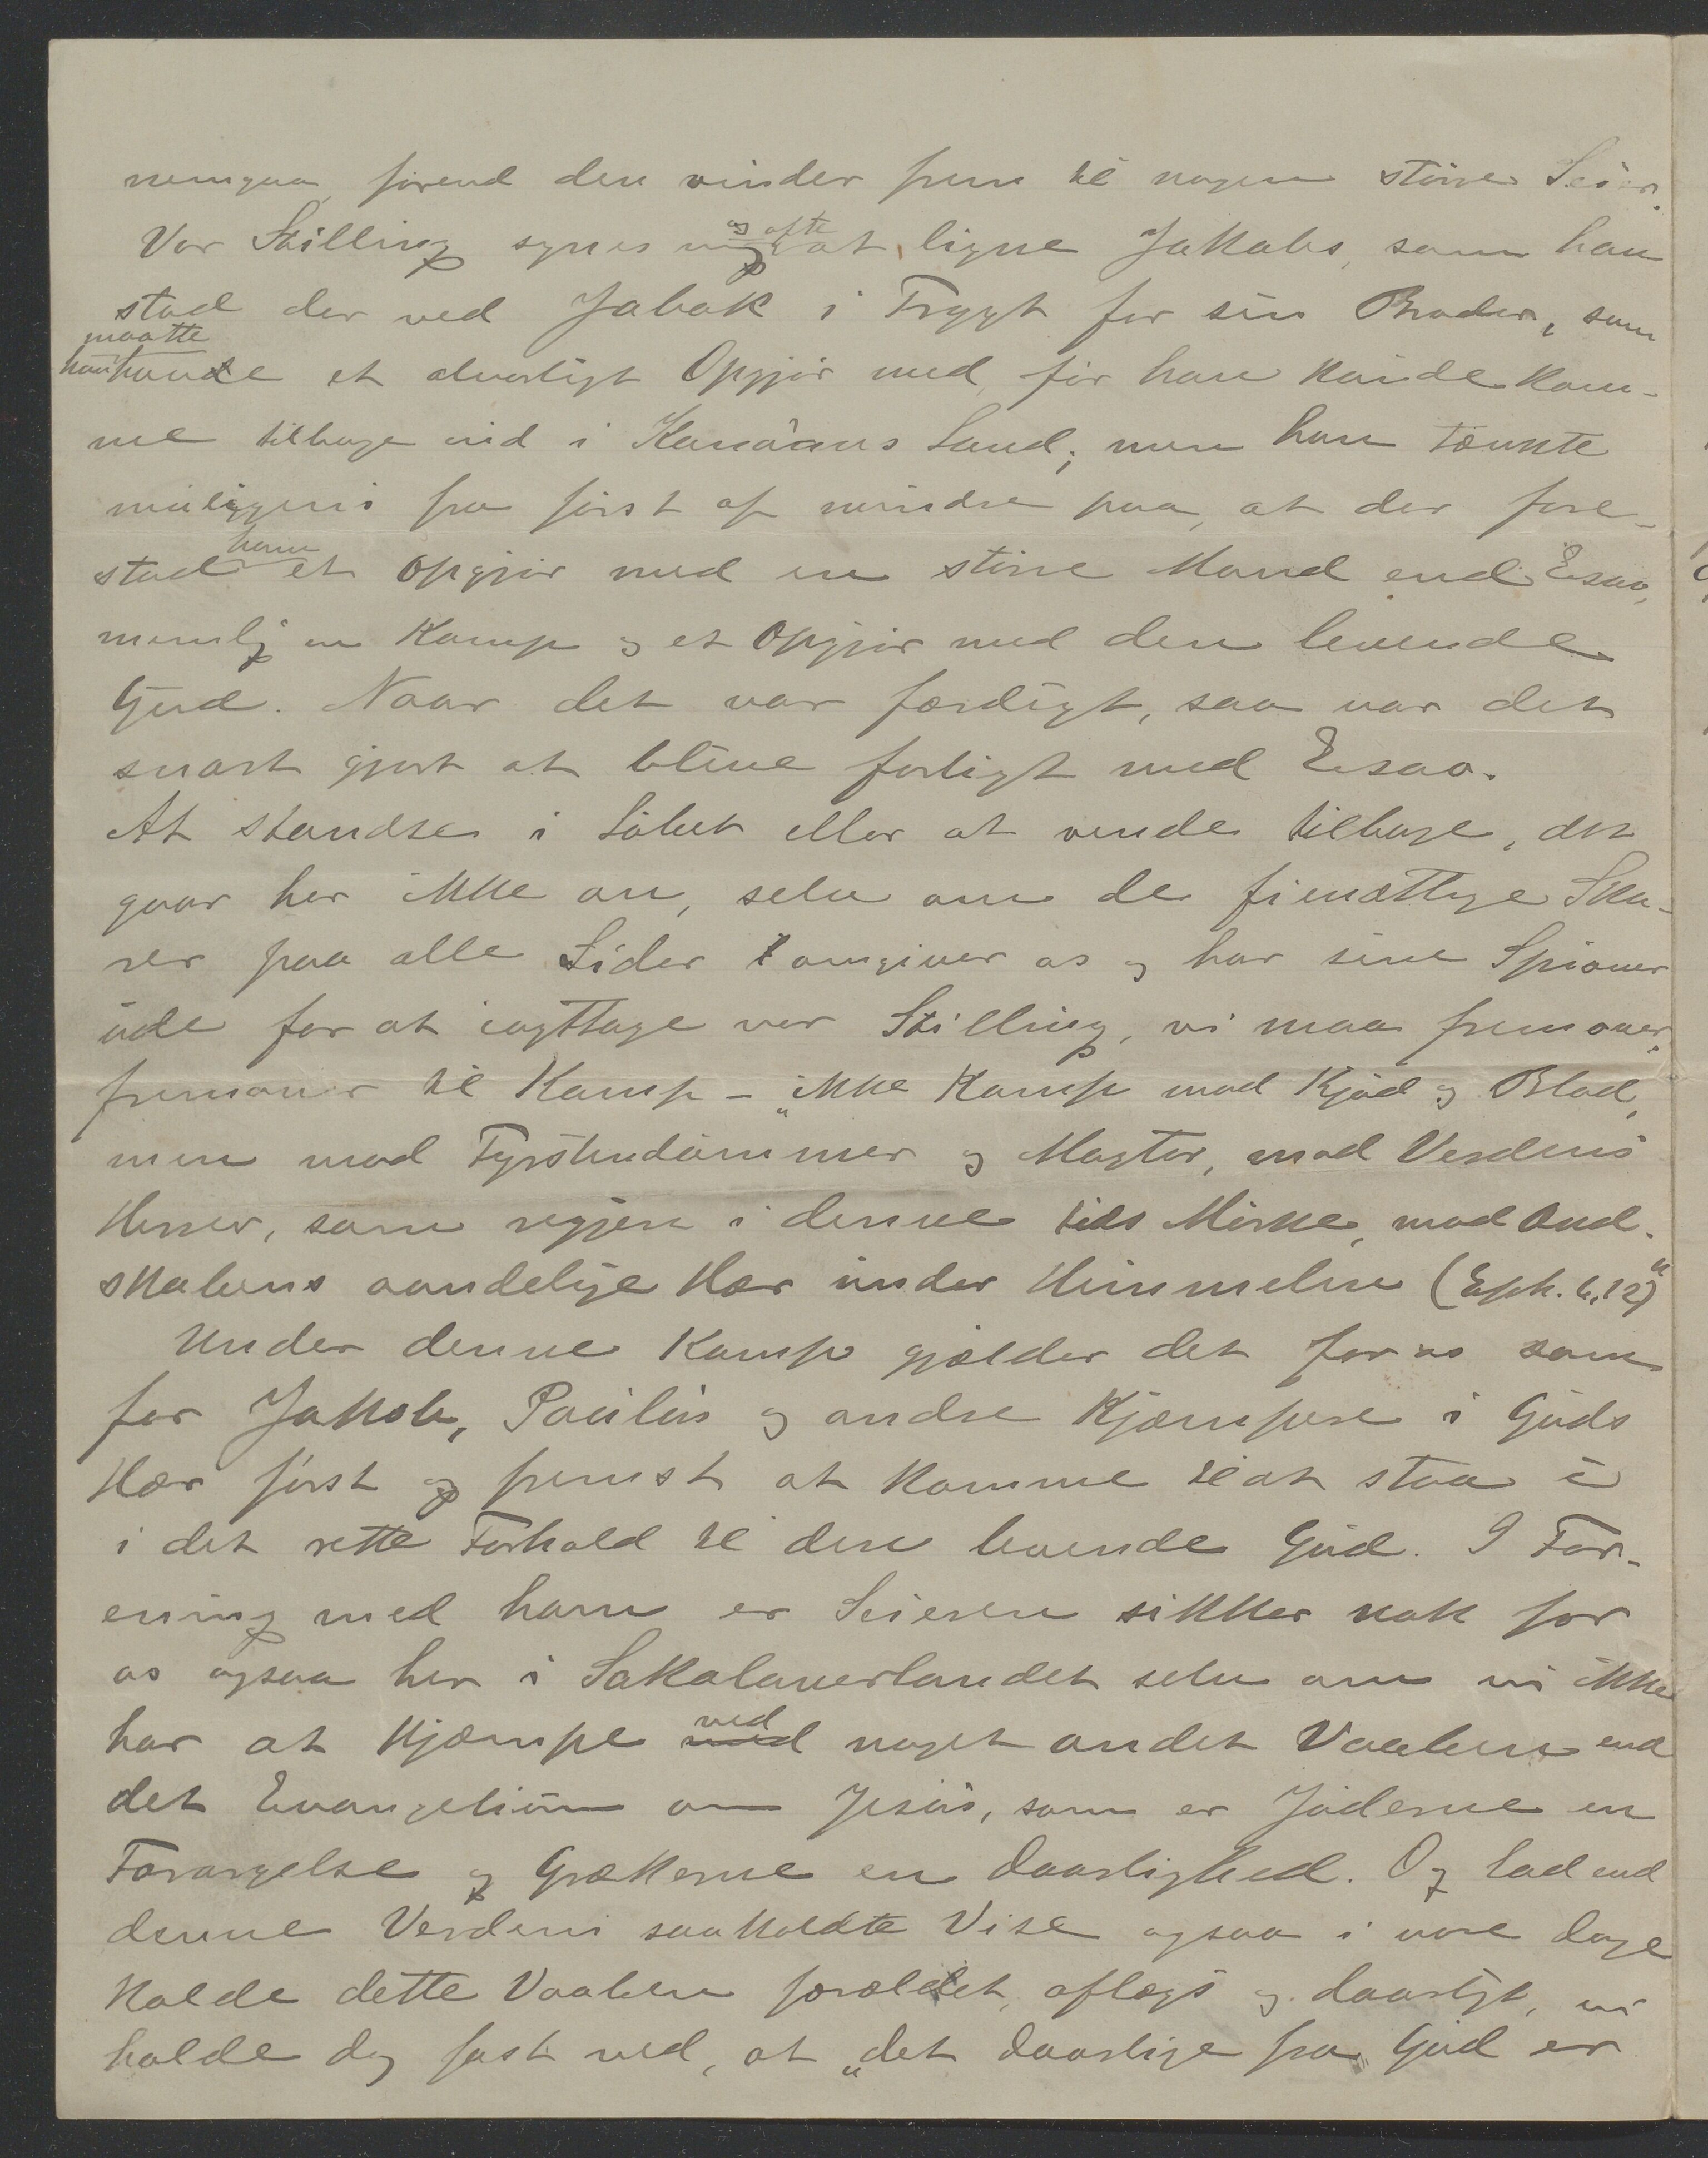 nemgaa, förend den vinder frem til nogen större Seier.
Vor Stilling synes mig ofte at ligne Jakobs, som han
stod der ved Jabok i Frygt for sin Broder, som
han maatte have et alvorligt Opgjör med, för han kunde kom-
me tilbage ind i Kanaans Land; men han tænkte
muligens fra först af mindre paa, at der fore-
stod ham et Opgjör med en större Mand end Esau,
nemlig en Kamp og et Opgjör med den levende
Gud. Naar det var færdigt, saa var det
snart gjort at blive forligt med Esau.
At standse i Löbet eller at vende tilbage, det
gaar her ikke an, selv om de fiendtlige Ska-
rer paa alle Sider omgiver os og har sine Spioner
ude for at iagttage vor Stilling, vi maa fremover,
fremover til Kamp - „ikke Kamp mod Kjöd og Blod,
men mod Fyrstendömmer og Magter, mod Verdens
Herrer, som regjere i denne tids Mörke, mod Ond-
skabens aandelige Hær under Himmelen (Eph. 6,12)“
Under denne Kamp gjælder det for os som
for Jakob, Paulus og andre Kjæmpere i Guds
Hær först og fremst at komme til at staa i
i det rette Forhold til den levende Gud. I For-
ening med ham er Seieren sikker nok for
os ogsaa her i Sakalaverlandet selv om vi ikke
har at kjæmpe med ved noget andet Vaaben end
det Evangelium om Jesus, som er Jöderne en
Forargelse og Grækerne en Daarlighed. Og lad end
denne Verdens saakaldte Vise ogsaa i vore Dage
kalde dette Vaaben forældet, aflægs og daarligt, vi
holde dog fast ved, at „det Daarlige fra Gud er